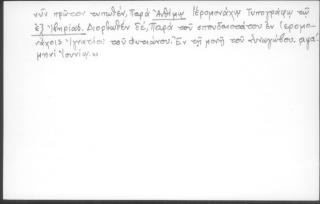 νῦν πρῶτον τυπωθέν, Παρὰ Ἀνθίμῳ Ἱερομονάχῳ Τυπογράφῳ τῷ
ἐξ Ἰβηρίας. Διορθωθέν δέ, Παρὰ τοῦ σπουδαιοτάτου ἐν Ἱερομο-
νάχοις Ἰγνατίου τοῦ Φυτιάνου. Ἐν τῇ μονῇ τοῦ Συναγώβου. αψα
μηνὶ Ἰουνίῳ